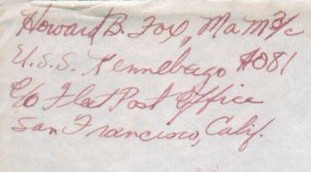 Howard B. Fox, Ma M 3/c
U.S.S. Kennebago AO81
c/o Fleet Post Office
San Francisco, Calif.